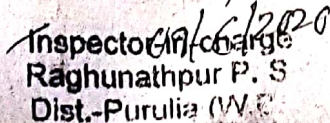 Inspector-in-charge
Raghunathpur P. S
Dist.-Purulia (W.